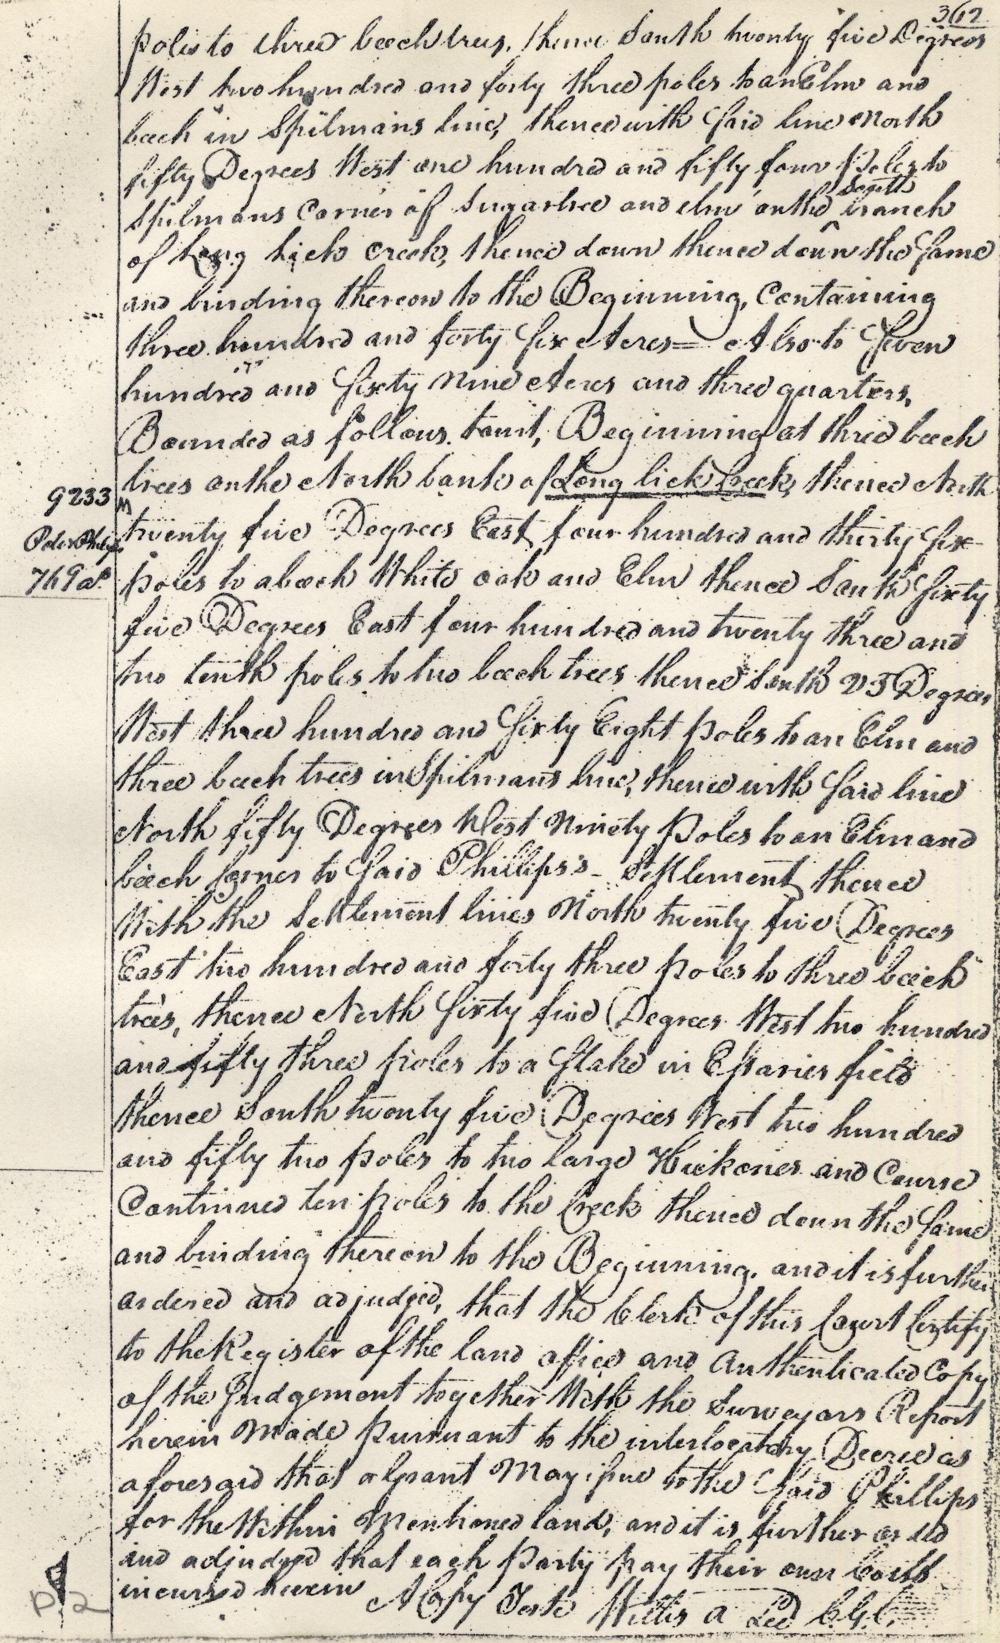 362
poles to three beech trees, thence South twenty five Degrees
West two hundred and forty three poles to an Elm and
beech in Spilmans line, thence with said line North
fifty Degrees West one hundred and fifty four Poles to
South
Spilmans Corner of Sugartree and elm on the branch
of Long lick creek, thence down thence down the same
and binding thereon to the Beginning, Containing
three hundred and forty six Acres = Also to seven
hundred and sixty nine Acres and three quarters,
Bounded as follows. towit, Beginning at three beech
trees on the North bank of Long lick Creek, thence North
9233
twenty five Degrees East four hundred and thirty six
poles to a beech White oak and Elm thence South sixty
769 as
five Degrees East four hundred and twenty three and
two tenth poles to two beech trees thence South 25 Degrees
West three hundred and sixty Eight poles to an Elm and
three beech trees in Spilmans line, thence with said line
North fifty Degrees West Ninety Poles to an Elm and
beech Corner to said Phillips's - Settlement, thence
With the Settlement lines North twenty five Degrees
East two hundred and forty three poles to three beech
trees, thence North sixty five Degrees West two hundred
and fifty three poles to a stake in field
thence South twenty five Degrees West two hundred
and fifty two poles to two large Hickories and Course
Continued ten poles to the Creek thence down the same
and binding thereon to the Beginning. and it is further
ordered and adjudged, that the Clerk of this Court Certify
to the Register of the land office and Authenticated Copy
of the Judgement together With the Surveyors Report
herein Made pursuant to the interlocutory Decree as
aforesaid that a Grant May issue to the said Phillips
for the Within Mentioned land, and it is further or ded
and adjudged that each party pay their own Costs
incurred herein A Copy Teste Willis A Lee C.G.C.
P 2